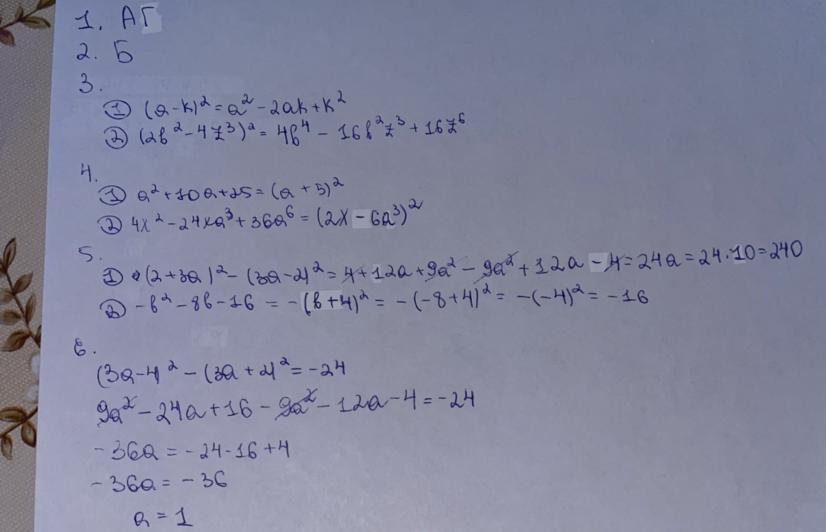 1. АГ
2. Б
3.
① (a-k)² = a² - 2ak + k²
② (2b² - 4z³)² = 4b⁴ - 16b²z³ + 16z⁶
4.
① a² + 10a + 25 = (a + 5)²
② 4x² - 24xa³ + 36a⁶ = (2x - 6a³)²
5.
① (2+3a)² - (3a-2)² = 4 + 12a + 9a² - 9a² + 12a - 4 = 24a = 24·10 = 240
② -b² - 8b - 16 = -(b+4)² = -(-8+4)² = -(-4)² = -16
6.
(3a-4)² - (3a+2)² = -24
9a² - 24a + 16 - 9a² - 12a - 4 = -24
-36a = -24-16+4
-36a = -36
a = 1